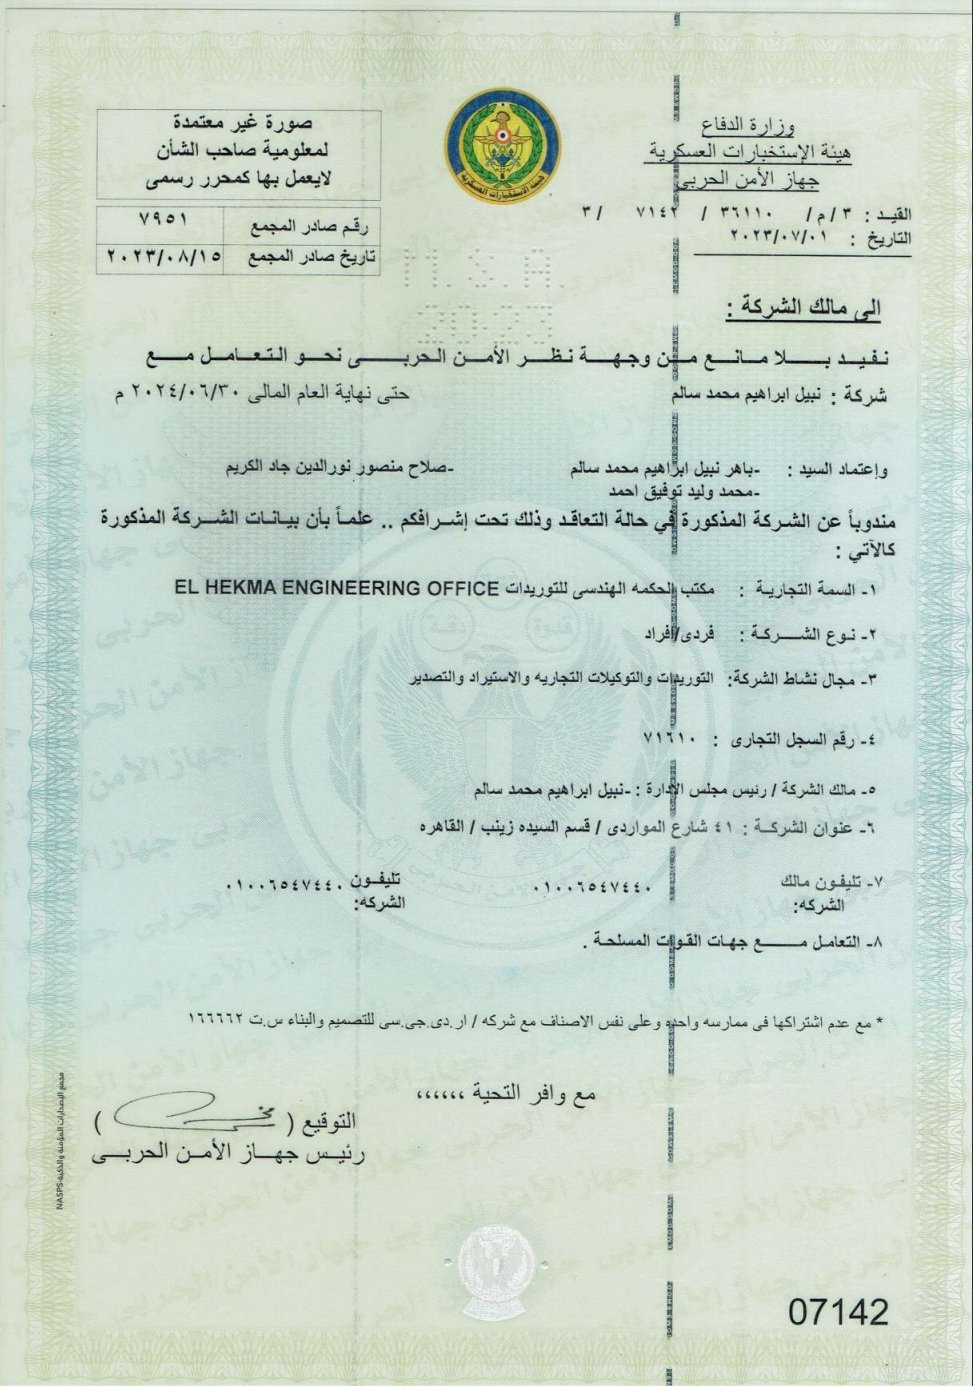 وزارة الدفاع
هيئة الإستخبارات العسكرية
جهاز الأمن الحربى
القيد : ٣ / م / ٣٦١١٠ / ٧١٤٢ / ٣
التاريخ : ٢٠٢٣/٠٧/٠١
هيئة الاستخبارات العسكرية
صورة غير معتمدة
لمعلومية صاحب الشأن
لايعمل بها كمحرر رسمى
رقم صادر المجمع ٧٩٥١
تاريخ صادر المجمع ٢٠٢٣/٠٨/١٥
M.S.A.
2023
الى مالك الشركة :
نفيد بلا مانع من وجهة نظر الأمن الحربى نحو التعامل مع
شركة : نبيل ابراهيم محمد سالم حتى نهاية العام المالى ٢٠٢٤/٠٦/٣٠ م
وإعتماد السيد : -باهر نبيل ابراهيم محمد سالم -صلاح منصور نورالدين جاد الكريم
-محمد وليد توفيق احمد
مندوباً عن الشركة المذكورة في حالة التعاقد وذلك تحت إشرافكم .. علماً بأن بيانات الشركة المذكورة
كالآتي :
١- السمة التجارية : مكتب الحكمه الهندسى للتوريدات EL HEKMA ENGINEERING OFFICE
٢- نوع الشركة : فردى/افراد
٣- مجال نشاط الشركة: التوريدات والتوكيلات التجاريه والاستيراد والتصدير
٤- رقم السجل التجارى : ٧١٦١٠
٥- مالك الشركة / رئيس مجلس الإدارة : -نبيل ابراهيم محمد سالم
٦- عنوان الشركة : ٤١ شارع المواردى / قسم السيده زينب / القاهره
٧- تليفون مالك الشركه: ٠١٠٠٦٥٤٧٤٤٠ تليفون الشركه: ٠١٠٠٦٥٤٧٤٤٠
٨- التعامل مع جهات القوات المسلحة .
* مع عدم اشتراكها فى ممارسه واحده وعلى نفس الاصناف مع شركه / ار.دى.جى.سى للتصميم والبناء س.ت ١٦٦٦٦٢
مع وافر التحية ،،،،،،
التوقيع ( )
رئيس جهاز الأمن الحربى
مجمع الإصدارات المؤمنة والذكية-NASPS
07142